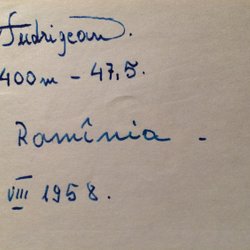 Sudrigean.
400m - 47,5.
Romînia -
VIII 1958.